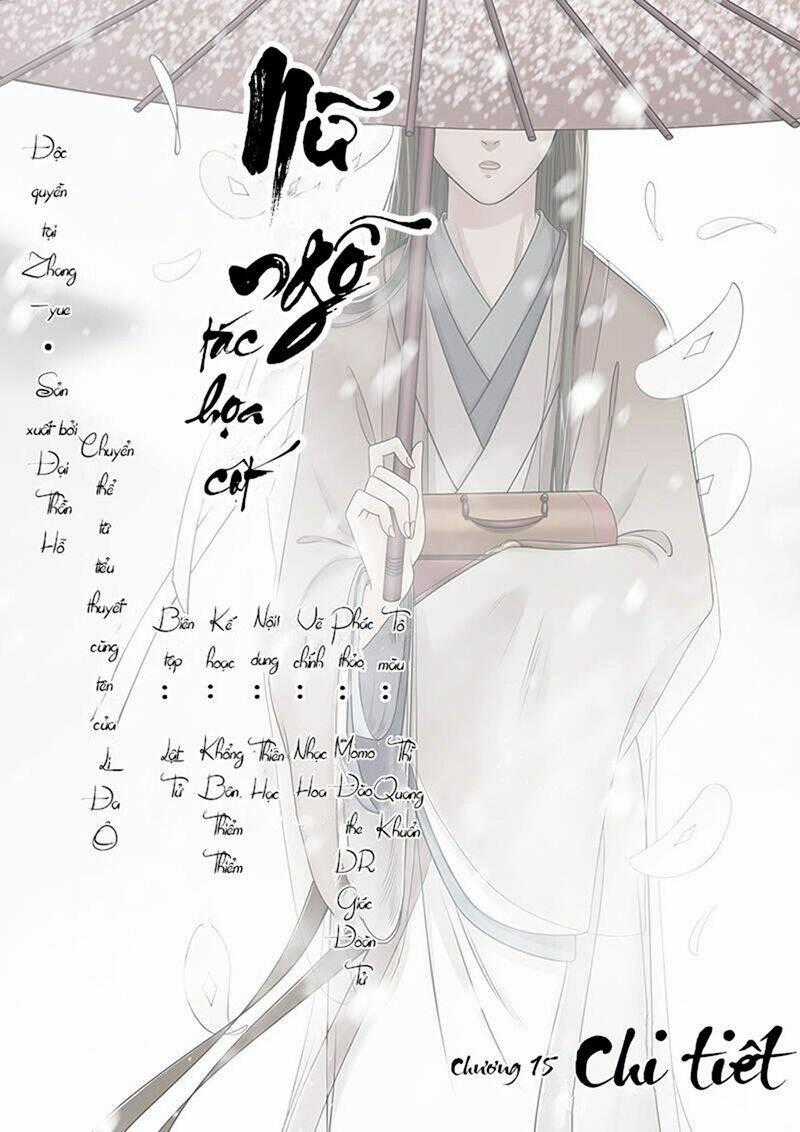 Nữ
ngỗ
tác
họa
cốt
Độc
quyền
tại
Zhang
—yue
•
Sản
xuất bởi
Đại
Thần
Hồ
Chuyển
thể
từ
tiểu
thuyết
cùng
tên
của
Li
Đa
Ô
Biên
tập
:
Lạt
Tử
Kế
hoạc
:
Khổng
Bân.
Thiểm
Thiểm
Nội
dung
:
Thiên
Hạc
Vẽ
chính
:
Nhạc
Hoa
Phác
thảo
:
Momo
Đào
the
DR
Giác
Đoàn
Tử
Tô
màu
:
Thì
Quang
Khuẩn
Chương 15
Chi tiết